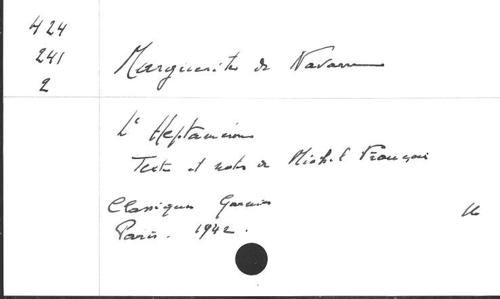 424
241
2
Marguerite de Navarre
L'Heptaméron
Texte et notes de Michel François
Classiques Garnier
Paris. 1942.